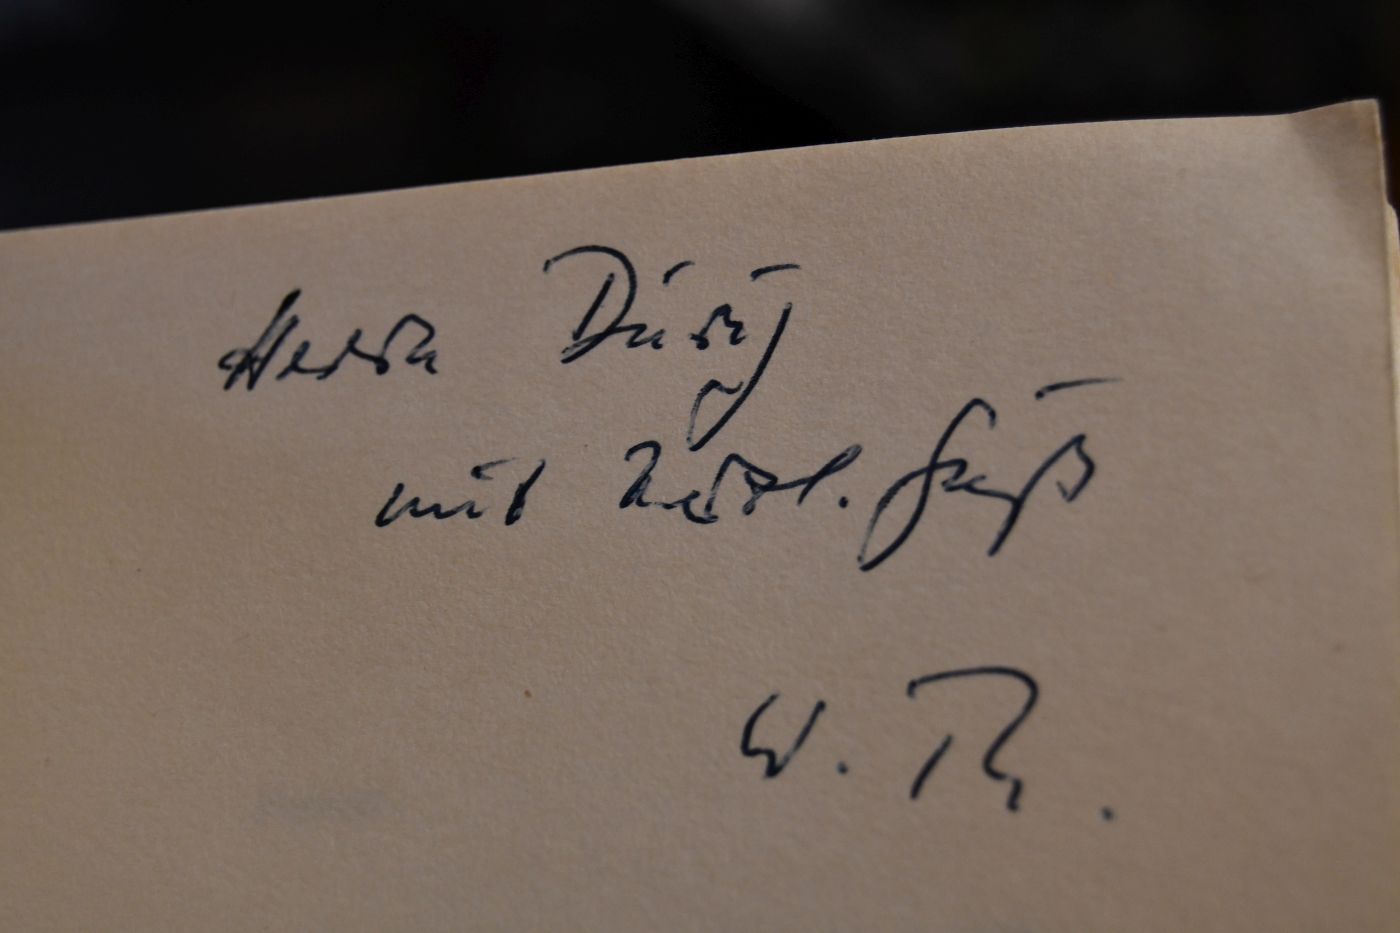 Herrn Dürig
mit herzl. Gruß
W. Th.